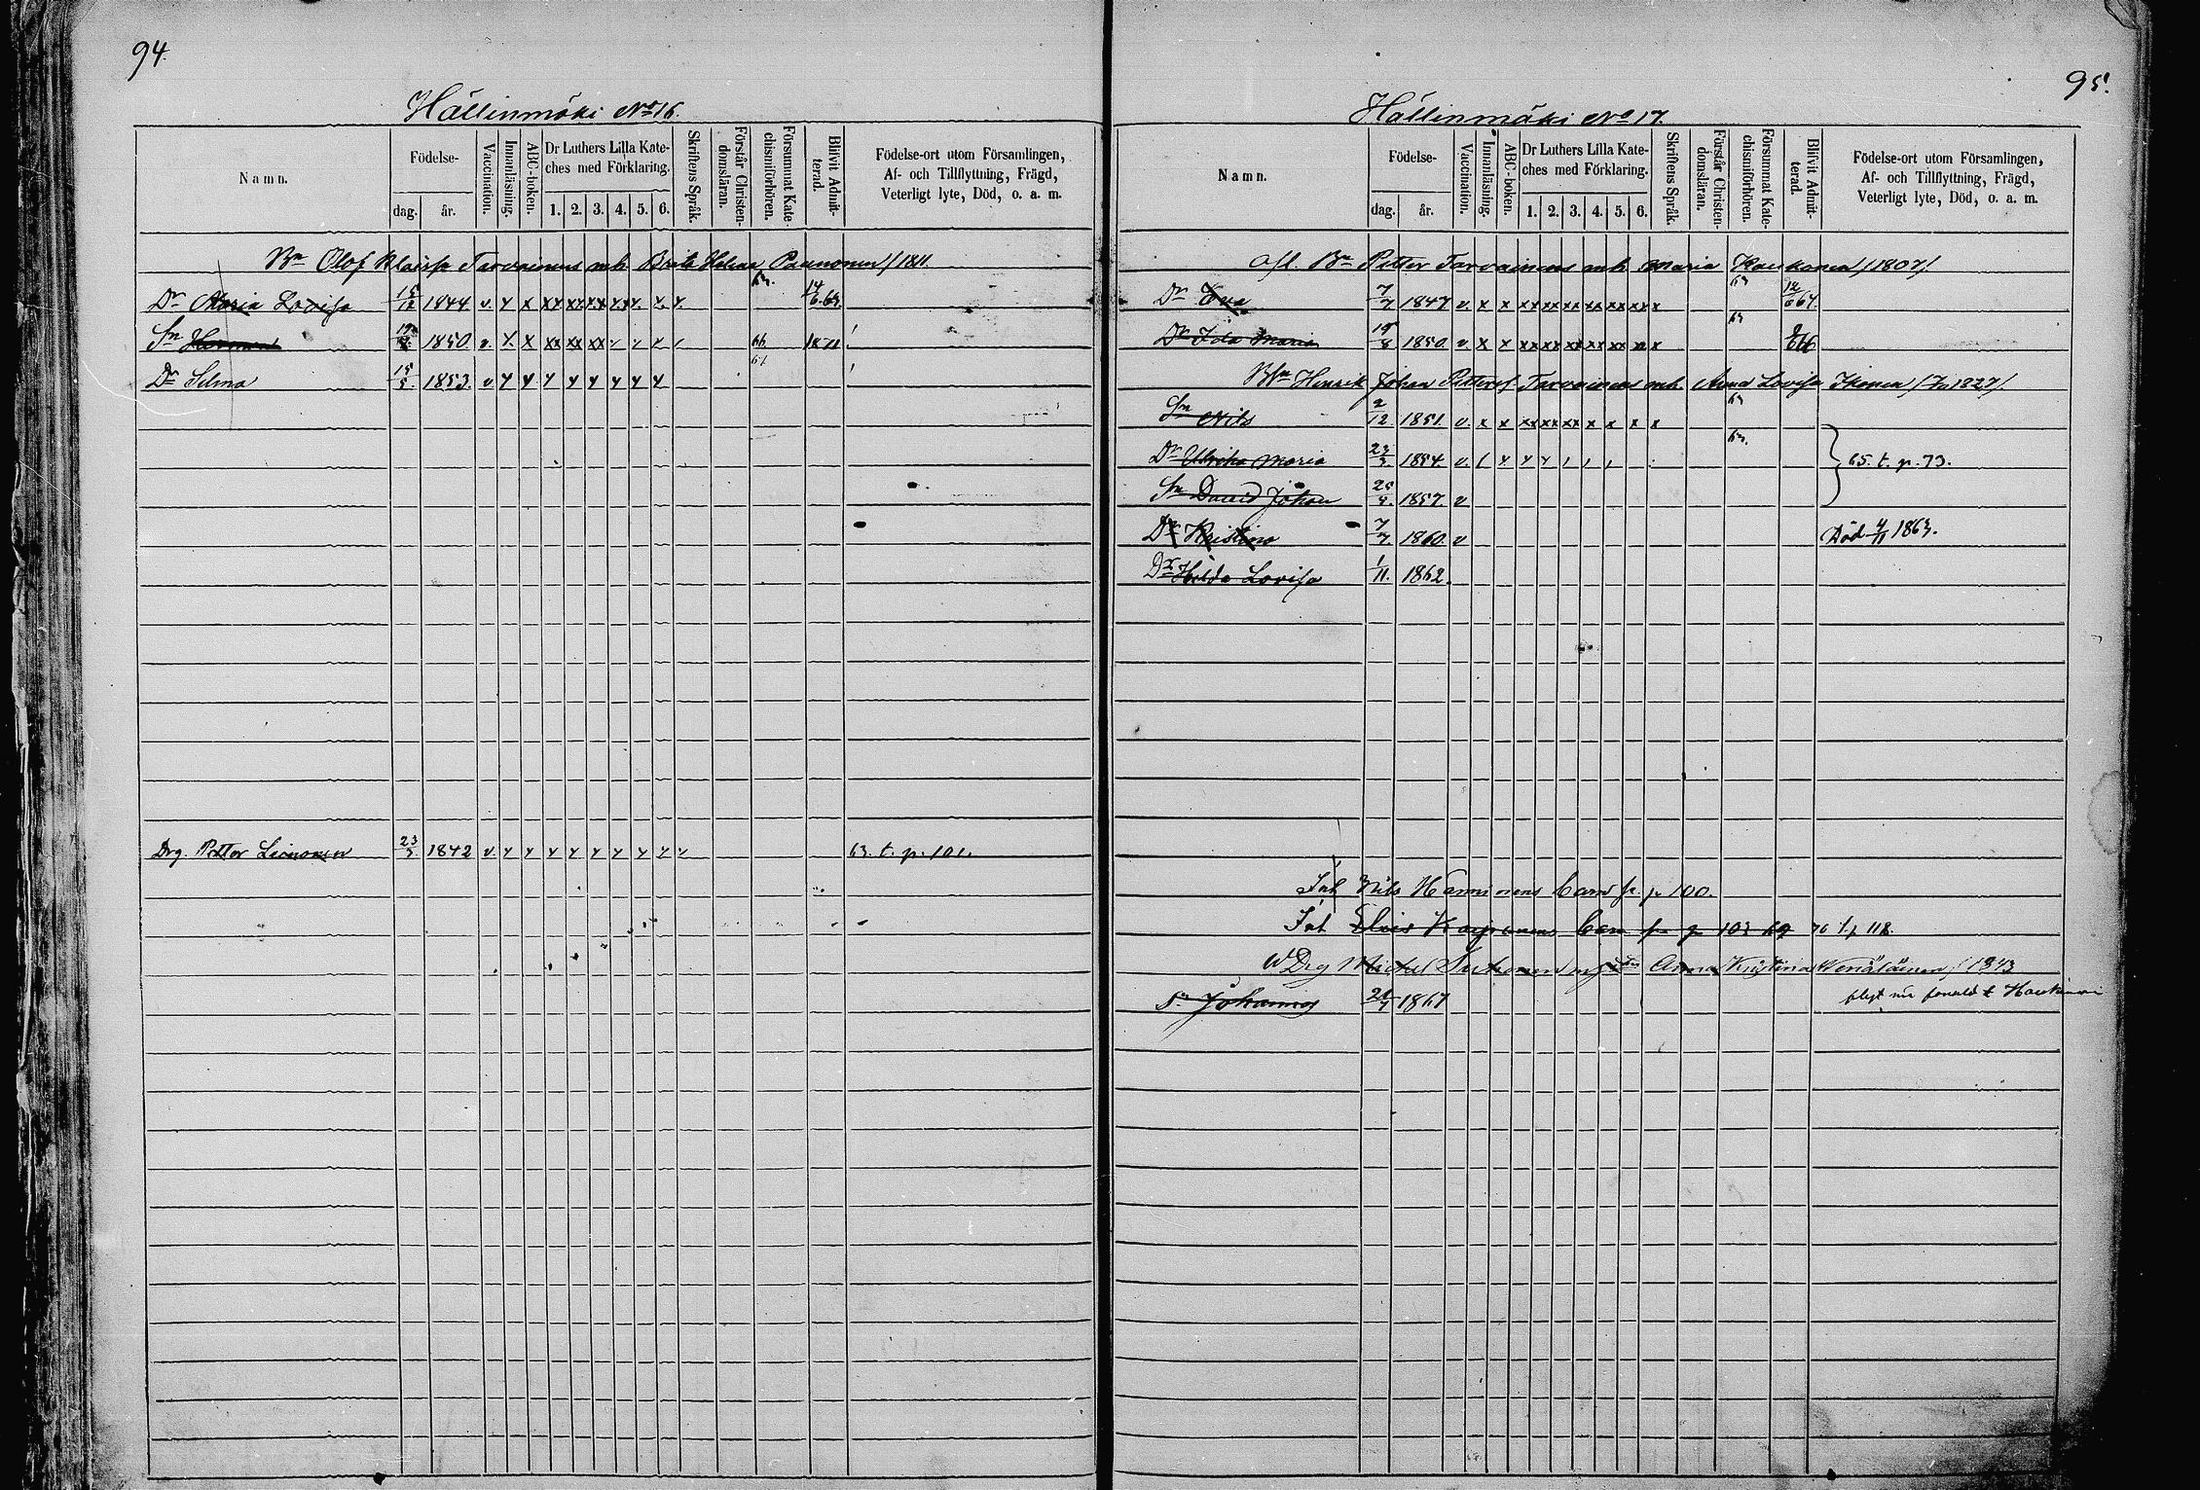 94.
Hällinmäki No 16.
Namn.
Födelse-
dag.
år.
Vaccination.
Innanläsning.
ABC-boken.
Dr Luthers Lilla Kate-
ches med Förklaring.
1. 2. 3. 4. 5. 6.
Skriftens Språk.
Förstår Christen-
domsläran.
Försummat Kate-
chismiförhören.
Blifvit Admit-
terad.
Födelse-ort utom Församlingen,
Af- och Tillflyttning, Frägd,
Veterligt lyte, Död, o. a. m.
Bn Olof Tarvainens enk. Brita Helena Paunonen /1811.
Dr Maria Lovisa 15/12 1844. v. 14/6 63.
Sn Herman 1850. v. 66 1871
Dr Selma 15/5 1853. v
Drg. Petter Leinonen 23/3 1842 v. 63. t. p. 101.
95.
Hällinmäki No 17.
Namn.
Födelse-
dag.
år.
Vaccination.
Innanläsning.
ABC-boken.
Dr Luthers Lilla Kate-
ches med Förklaring.
1. 2. 3. 4. 5. 6.
Skriftens Språk.
Förstår Christen-
domsläran.
Försummat Kate-
chismiförhören.
Blifvit Admit-
terad.
Födelse-ort utom Församlingen,
Af- och Tillflyttning, Frägd,
Veterligt lyte, Död, o. a. m.
Afl. Bn Petter Tarvainens enk. Maria Kaukonen /1807/.
Dr Eva 7/7 1847 v. x x xx xx xx xx xx xx x 12/6 64.
Dr Ida Maria 19/8 1850 v. x x
Henrik Johan Tarvainens enk. Anna Lovisa Ikonen 1827/.
Sn Nils 2/12 1851. v. x x
Dr Ulrika Maria 1854. v. 65. t. p. 73.
Sn David Johan 1857. v
Dr Kristina 7/7 1860. v Död 4/11 1863.
Dr Hilda Lovisa 1/11. 1862.
Inh Nils Hämminens barn fr. p 100.
Inh barn fr p 103 t. p 118.
Drg Michel Anna Kristina Wenäläinen / 1843
Sn Johannes 1867